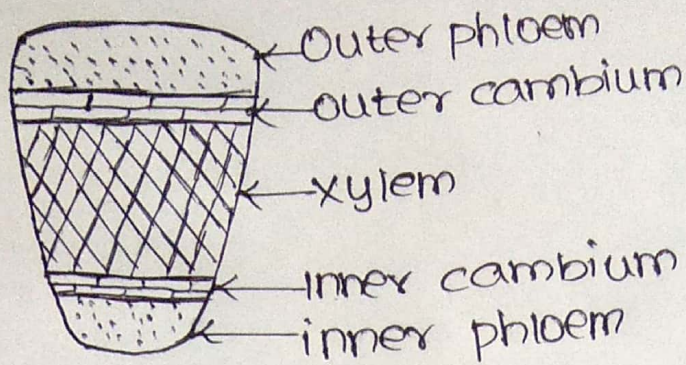 Outer phloem
Outer cambium
xylem
Inner cambium
inner phloem